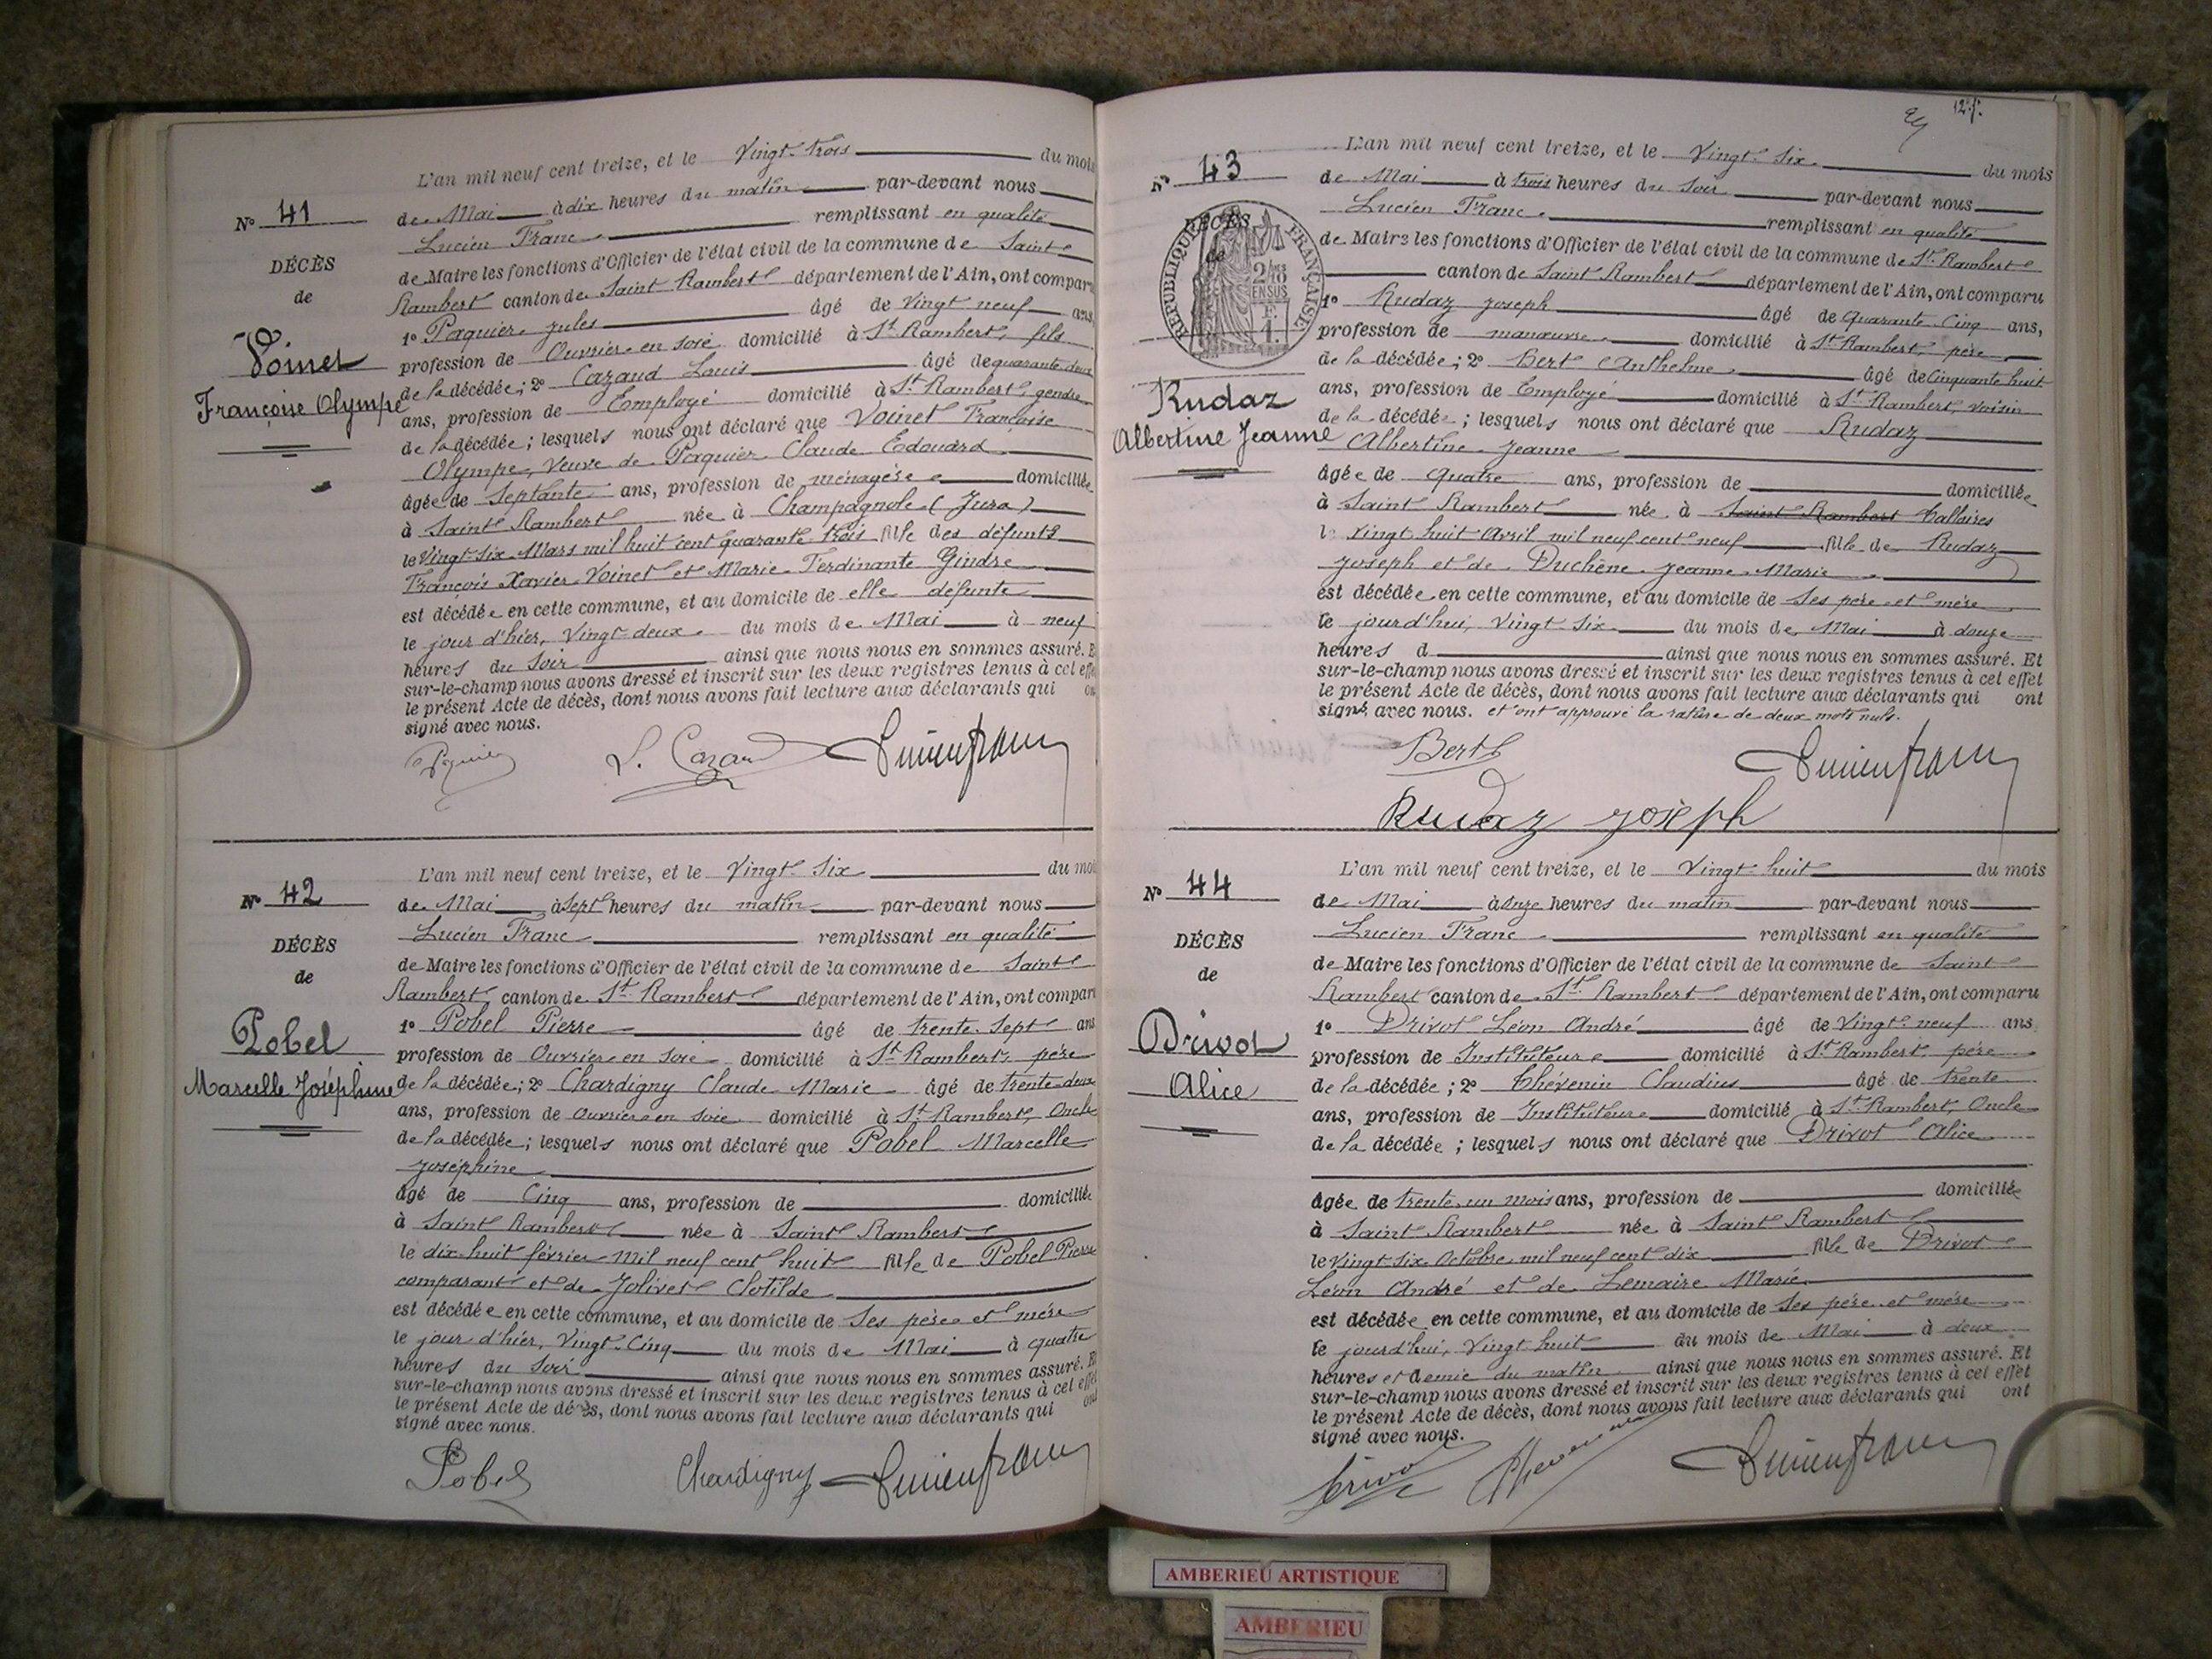 L'an mil neuf cent treize, et le Vingt-trois du mois
N° 41
de Mai à dix heures du matin par-devant nous
Lucien Franc remplissant en qualité
DÉCÈS
de Maire les fonctions d'Officier de l'état civil de la commune de Saint
de
Rambert canton de Saint Rambert département de l'Ain, ont comparu
1° Paquier Jules âgé de Vingt neuf ans,
Voinet
profession de Ouvrier en soie domicilié à St Rambert, fils
de la décédée; 2° Cazaud Louis âgé de quarante deux
Françoise Olympe
ans, profession de Employé domicilié à St Rambert, gendre
de la décédée; lesquels nous ont déclaré que Voinet Françoise
Olympe, Veuve de Paquier Claude Edouard
âgée de Septante ans, profession de ménagère domiciliée
à Saint Rambert née à Champagnole (Jura)
le Vingt-six Mars mil huit cent quarante trois fille des défunts
François Xavier Voinet et Marie Ferdinante Gindre
est décédée en cette commune, et au domicile de elle défunte
le jour d'hier, Vingt-deux du mois de Mai à neuf
heures du Soir ainsi que nous nous en sommes assuré. E
sur-le-champ nous avons dressé et inscrit sur les deux registres tenus à cet effe
le présent Acte de décès, dont nous avons fait lecture aux déclarants qui on
signé avec nous.
L. Cazaud Lucien franc
L'an mil neuf cent treize, et le Vingt-Six du moi
N° 42
de Mai à Sept heures du matin par-devant nous
Lucien Franc remplissant en qualité
DÉCÈS
de Maire les fonctions d'Officier de l'état civil de la commune de Saint
de
Rambert canton de St Rambert département de l'Ain, ont compar
1° Pobel Pierre âgé de trente-Sept ans
Pobel
profession de Ouvrier en soie domicilié à St Rambert, père
Marcelle Joséphine
de la décédée; 2° Chardigny Claude Marie âgé de trente-deux
ans, profession de ouvrier en soie domicilié à St Rambert, Oncle
de la décédée; lesquels nous ont déclaré que Pobel Marcelle
Joséphine
âgé de Cinq ans, profession de domiciliée
à Saint Rambert née à Saint Rambert
le dix huit février mil neuf cent huit fille de Pobel Pierre
comparant et de Jolivet Clotilde
est décédée en cette commune, et au domicile de Ses père et mère
le jour d'hier, Vingt-Cinq du mois de Mai à quatre
heures du Soir ainsi que nous nous en sommes assuré. E
sur-le-champ nous avons dressé et inscrit sur les deux registres tenus à cet effet
le présent Acte de décès, dont nous avons fait lecture aux déclarants qui on
signé avec nous.
Pobel Chardigny Lucien franc
127.
L'an mil neuf cent treize, et le Vingt-Six du mois
N° 43
de Mai à trois heures du Soir par-devant nous
Lucien Franc remplissant en qualité
DÉCÈS
de Maire les fonctions d'Officier de l'état civil de la commune de St Rambert
de
RÉPUBLIQUE FRANÇAISE
2/10 EN SUS
F. 1.
canton de Saint Rambert département de l'Ain, ont comparu
1° Rudaz Joseph âgé de Quarante-Cinq ans,
profession de manœuvre domicilié à St Rambert, père
de la décédée; 2° Bert Anthelme âgé de Cinquante huit
Rudaz
ans, profession de Employé domicilié à St Rambert, voisin
Albertine Jeanne
de la décédée; lesquels nous ont déclaré que Rudaz
Albertine Jeanne
âgée de quatre ans, profession de domiciliée
à Saint Rambert née à Saint Rambert Talloires
le Vingt huit Avril mil neuf cent neuf fille de Rudaz
Joseph et de Duchêne Jeanne Marie
est décédée en cette commune, et au domicile de Ses père et mère
le jourd'hui, Vingt-Six du mois de Mai à douze
heures d ainsi que nous nous en sommes assuré. Et
sur-le-champ nous avons dressé et inscrit sur les deux registres tenus à cet effet
le présent Acte de décès, dont nous avons fait lecture aux déclarants qui ont
signé avec nous. et ont approuvé la rature de deux mots nuls.
Bert Lucien franc
Rudaz Joseph
L'an mil neuf cent treize, et le Vingt-huit du mois
N° 44
de Mai à Onze heures du matin par-devant nous
Lucien Franc remplissant en qualité
DÉCÈS
de Maire les fonctions d'Officier de l'état civil de la commune de Saint
de
Rambert canton de St Rambert département de l'Ain, ont comparu
1° Drivot Léon André âgé de Vingt-neuf ans
Drivot
profession de Instituteur domicilié à St Rambert, père
Alice
de la décédée; 2° Thévenin Claudius âgé de trente
ans, profession de Instituteur domicilié à St Rambert, Oncle
de la décédée; lesquels nous ont déclaré que Drivot Alice
âgée de trente-un mois ans, profession de domiciliée
à Saint Rambert née à Saint Rambert
le Vingt-Six Octobre mil neuf cent dix fille de Drivot
Léon André et de Lemaire Marie
est décédée en cette commune, et au domicile de Ses père et mère
le jourd'hui, Vingt huit du mois de Mai à deux
heures et demie du matin ainsi que nous nous en sommes assuré. Et
sur-le-champ nous avons dressé et inscrit sur les deux registres tenus à cet effet
le présent Acte de décès, dont nous avons fait lecture aux déclarants qui ont
signé avec nous.
Drivot Thevenin Lucien franc
AMBERIEU ARTISTIQUE
AMBERIEU